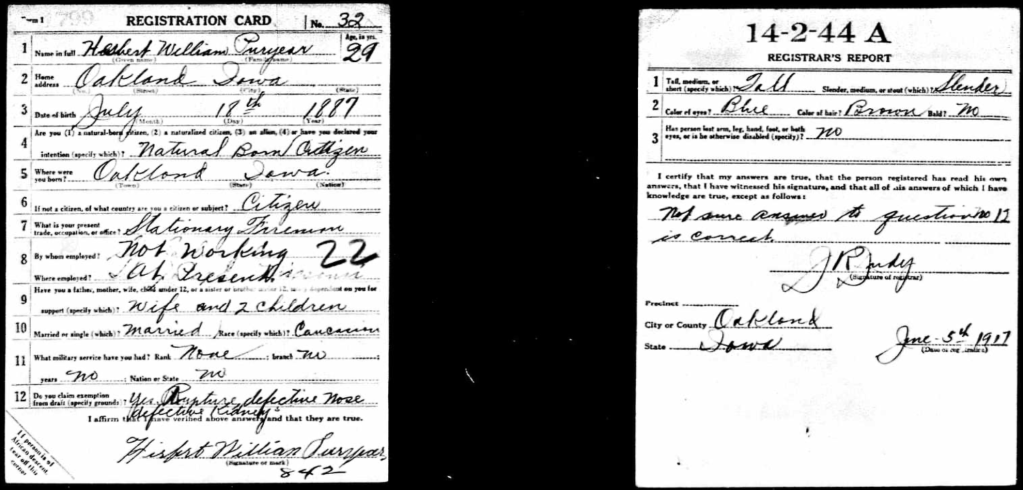 Form 1 1799 REGISTRATION CARD No. 32
1 Name in full Herbert William Puryear Age, in yrs. 29
(Given name) (Family name)
2 Home address Oakland Iowa
(No.) (Street) (City) (State)
3 Date of birth July 18th 1887
(Month) (Day) (Year)
4 Are you (1) a natural-born citizen, (2) a naturalized citizen, (3) an alien, (4) or have you declared your
intention (specify which)? Natural Born Citizen
5 Where were you born? Oakland Iowa
(Town) (State) (Nation)
6 If not a citizen, of what country are you a citizen or subject? Citizen
7 What is your present trade, occupation, or office? Stationary Fireman
8 By whom employed? Not Working 22
Where employed? At Present
9 Have you a father, mother, wife, child under 12, or a sister or brother under 12, solely dependent on you for
support (specify which)? Wife and 2 children
10 Married or single (which)? Married Race (specify which)? Caucasian
11 What military service have you had? Rank None ; branch no ;
years no ; Nation or State no
12 Do you claim exemption from draft (specify grounds)? Yes Rupture, defective nose
defective Kidneys
I affirm that I have verified above answers and that they are true.
Herbert William Puryear
(Signature or mark)
842
If person is of
African descent,
tear off this
corner
14-2-44 A
REGISTRAR'S REPORT
1 Tall, medium, or short (specify which)? Tall Slender, medium, or stout (which)? Slender
2 Color of eyes? Blue Color of hair? Brown Bald? No
3 Has person lost arm, leg, hand, foot, or both
eyes, or is he otherwise disabled (specify)? No
I certify that my answers are true, that the person registered has read his own
answers, that I have witnessed his signature, and that all of his answers of which I have
knowledge are true, except as follows:
Not sure answer to question no 12
is correct.
J R Judy
(Signature of registrar)
Precinct
City or County Oakland
State Iowa June 5th 1917
(Date of registration)